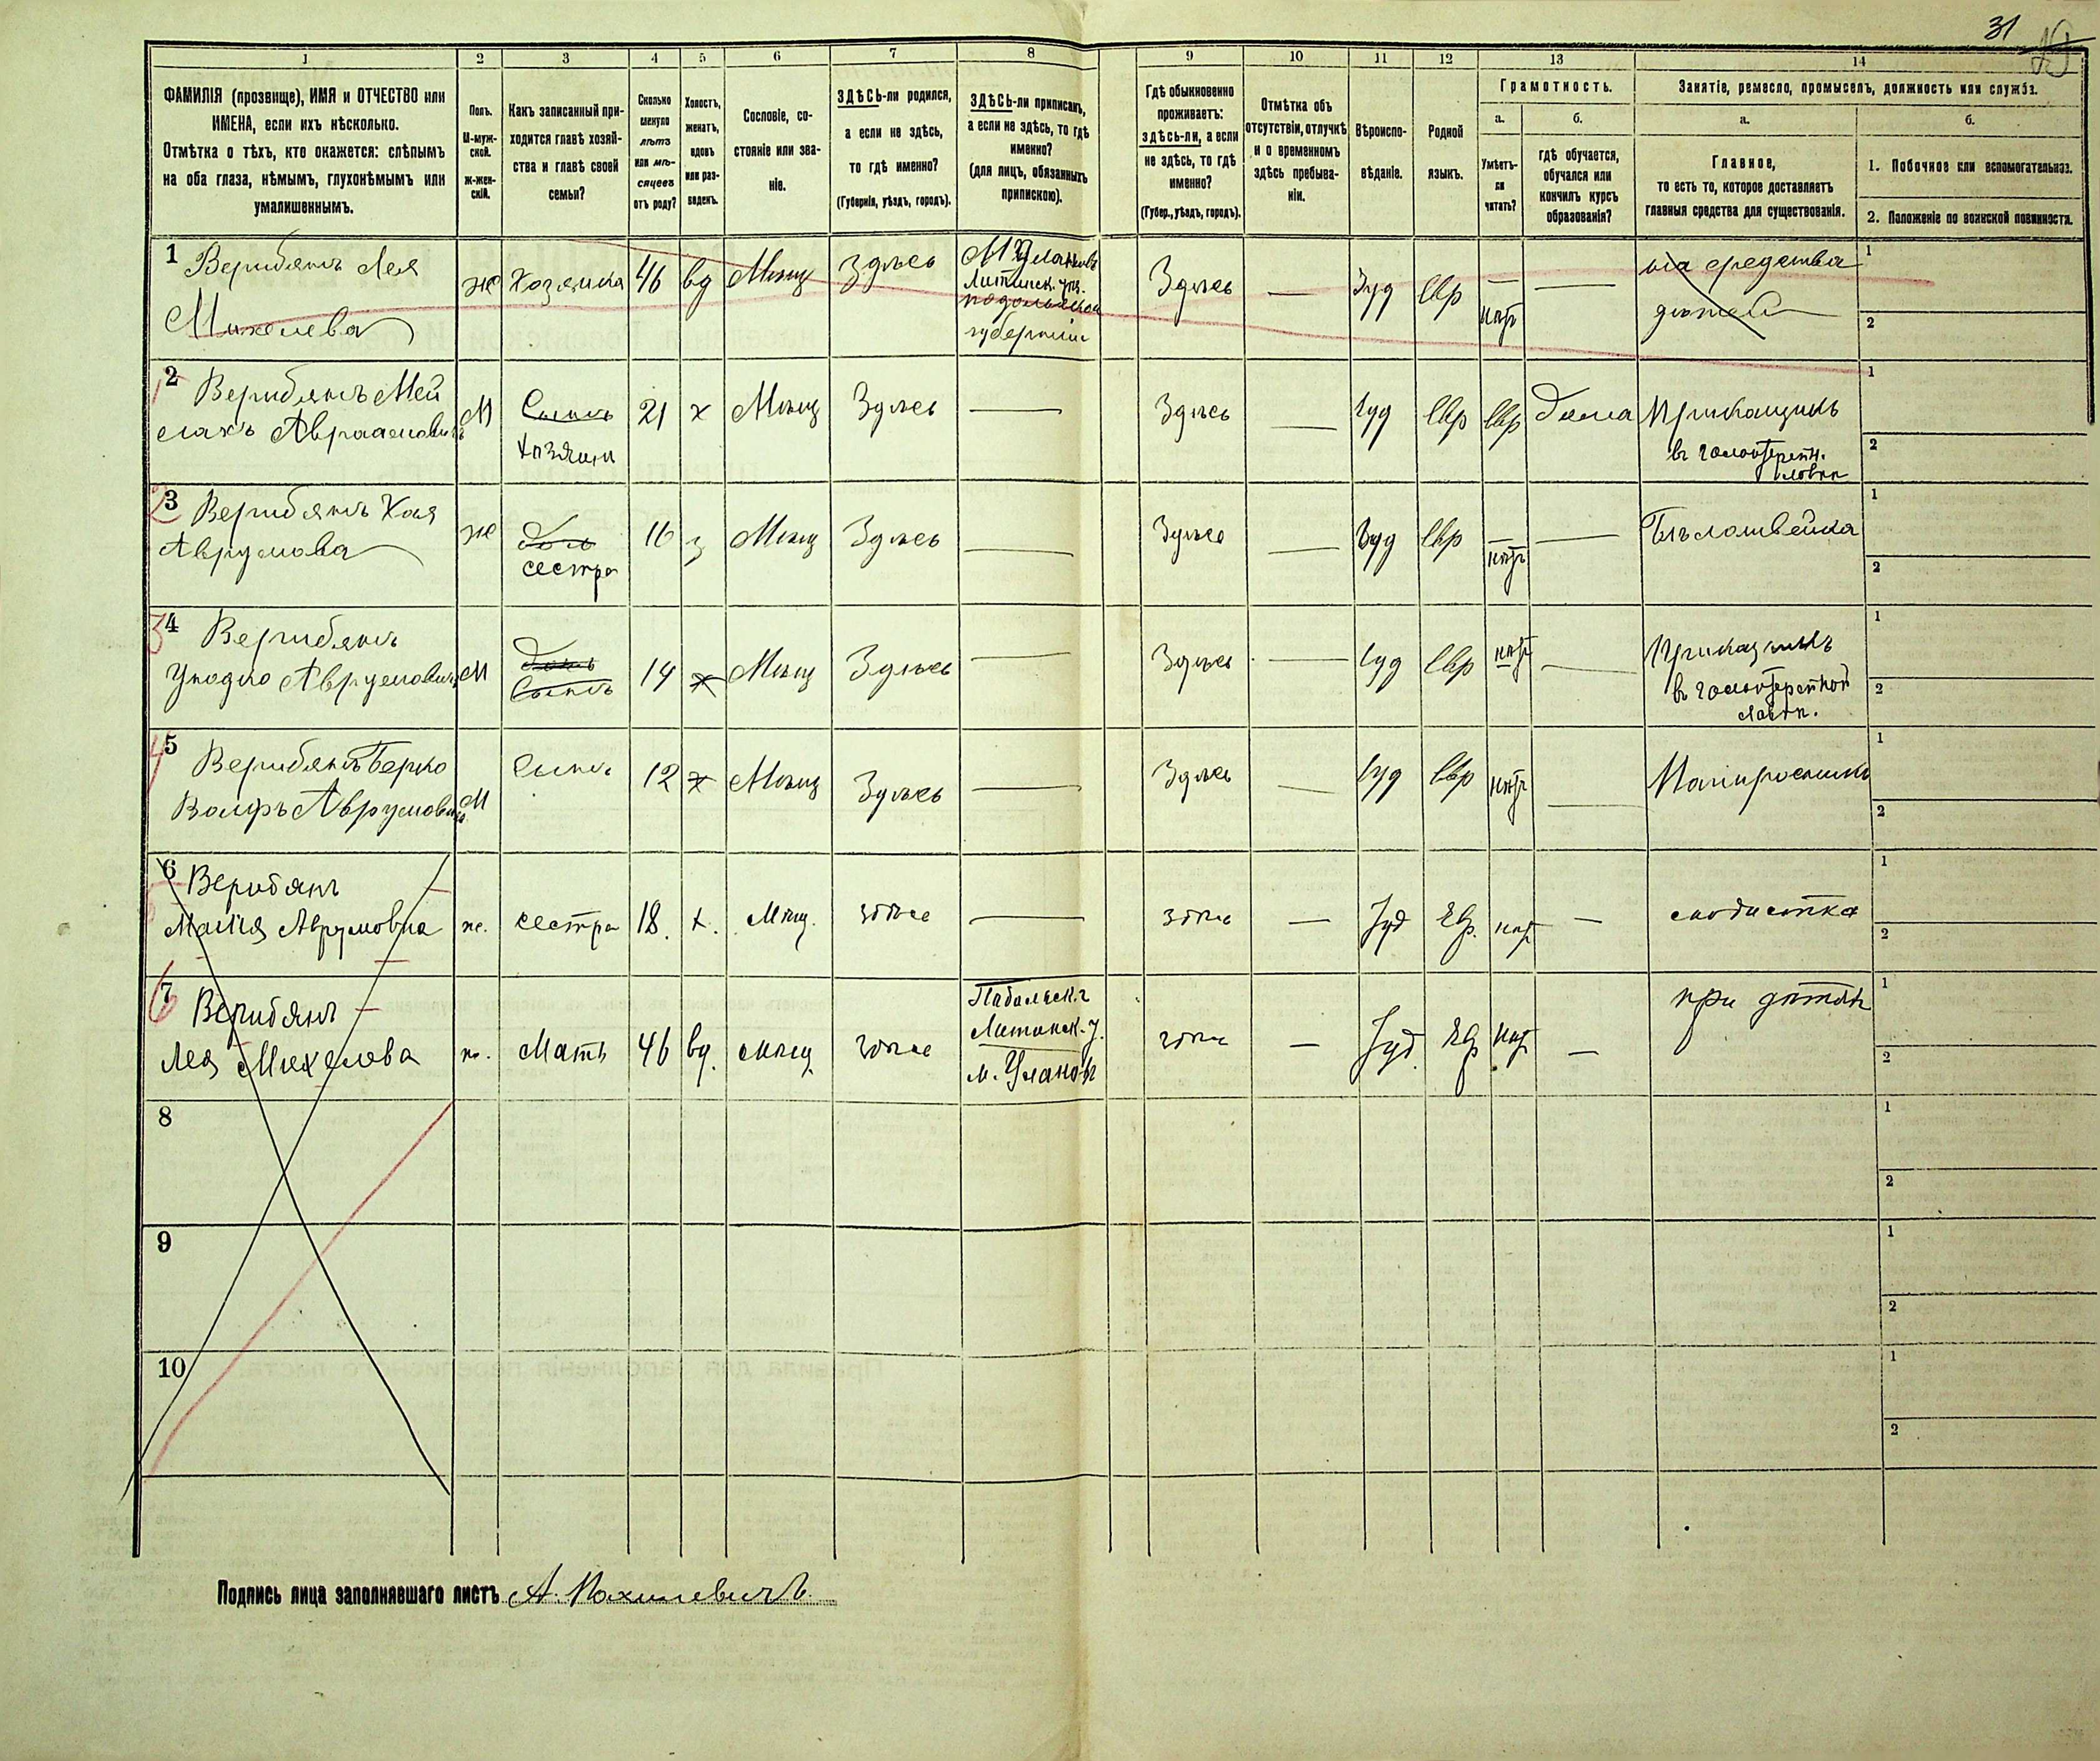 31
1 2 3 4 5 6 7 8 9 10 11 12 13 14
ФАМИЛІЯ (прозвище), ИМЯ и ОТЧЕСТВО или
ИМЕНА, если ихъ нѣсколько.
Отмѣтка о тѣхъ, кто окажется: слѣпымъ
на оба глаза, нѣмымъ, глухонѣмымъ или
умалишеннымъ.
Полъ.
М-муж-
ской.
Ж-жен-
скій.
Какъ записанный при-
ходится главѣ хозяй-
ства и главѣ своей
семьи?
Сколько
минуло
лѣтъ
или мѣ-
сяцевъ
отъ роду?
Холостъ,
женатъ,
вдовъ
или раз-
веденъ.
Сословіе, со-
стояніе или зва-
ніе.
ЗДѢСЬ-ли родился,
а если не здѣсь,
то гдѣ именно?
(Губернія, уѣздъ, городъ).
ЗДѢСЬ-ли приписанъ,
а если не здѣсь, то гдѣ
именно?
(для лицъ, обязанныхъ
припискою).
Гдѣ обыкновенно
проживаетъ:
здѣсь-ли, а если
не здѣсь, то гдѣ
именно?
(Губер., уѣздъ, городъ).
Отмѣтка объ
отсутствіи, отлучкѣ
и о временномъ
здѣсь пребыва-
ніи.
Вѣроиспо-
вѣданіе.
Родной
языкъ.
Грамотность.
а.
Умѣетъ-
ли
читать?
б.
гдѣ обучается,
обучался или
кончилъ курсъ
образованія?
Занятіе, ремесло, промыселъ, должность или служба.
а.
Главное,
то есть то, которое доставляетъ
главныя средства для существованія.
б.
1. Побочное или вспомогательное.
2. Положеніе по воинской повинности.
1 Верибянъ Лея
Михелева
же Хозяйка 46 вд Мѣщ Здѣсь
М Улановъ
Литинск. уѣз.
подольской
губерніи
Здѣсь — Іуд Евр — нѣтъ —
на средства
дѣтей
1
2
2 Верибянъ Мей
слахъ Авраамовичъ
М Сынъ
хозяинъ
21 х Мѣщ Здѣсь — Здѣсь — Іуд Евр Евр дома Прикащикъ
въ галантерейн.
ловкѣ
1
2
3 Верибянъ Хая
Аврумова
же дочь
сестра
16 Мѣщ Здѣсь — Здѣсь — Іуд Евр — нѣтъ — Бѣлошвейка
1
2
4 Верибянъ
Аврумовичъ
М Сынъ 14 х Мѣщ Здѣсь — Здѣсь — Іуд Евр нѣтъ — Приказчикъ
въ галантерейной
лавкѣ.
1
2
5 Верибянъ Берко
Волфъ Аврумовичъ
М Сынъ 12 х Мѣщ Здѣсь — Здѣсь — Іуд Евр нѣтъ — Папиросникъ
1
2
6 Верибянъ
Малія Аврумовна
же. сестра 18. х. Мѣщ. здѣсь — здѣсь — Іуд Евр. нѣтъ — модистка
1
2
7 Верибянъ
Лея Михелова
же. Мать 46 вд. мѣщ. здѣсь
Подольск. г
Литинск. у.
м. Улановъ
здѣсь — Іуд. Евр нѣтъ. — при дѣтяхъ
1
2
8
1
2
9
1
2
10
1
2
Подпись лица заполнявшаго листъ А.